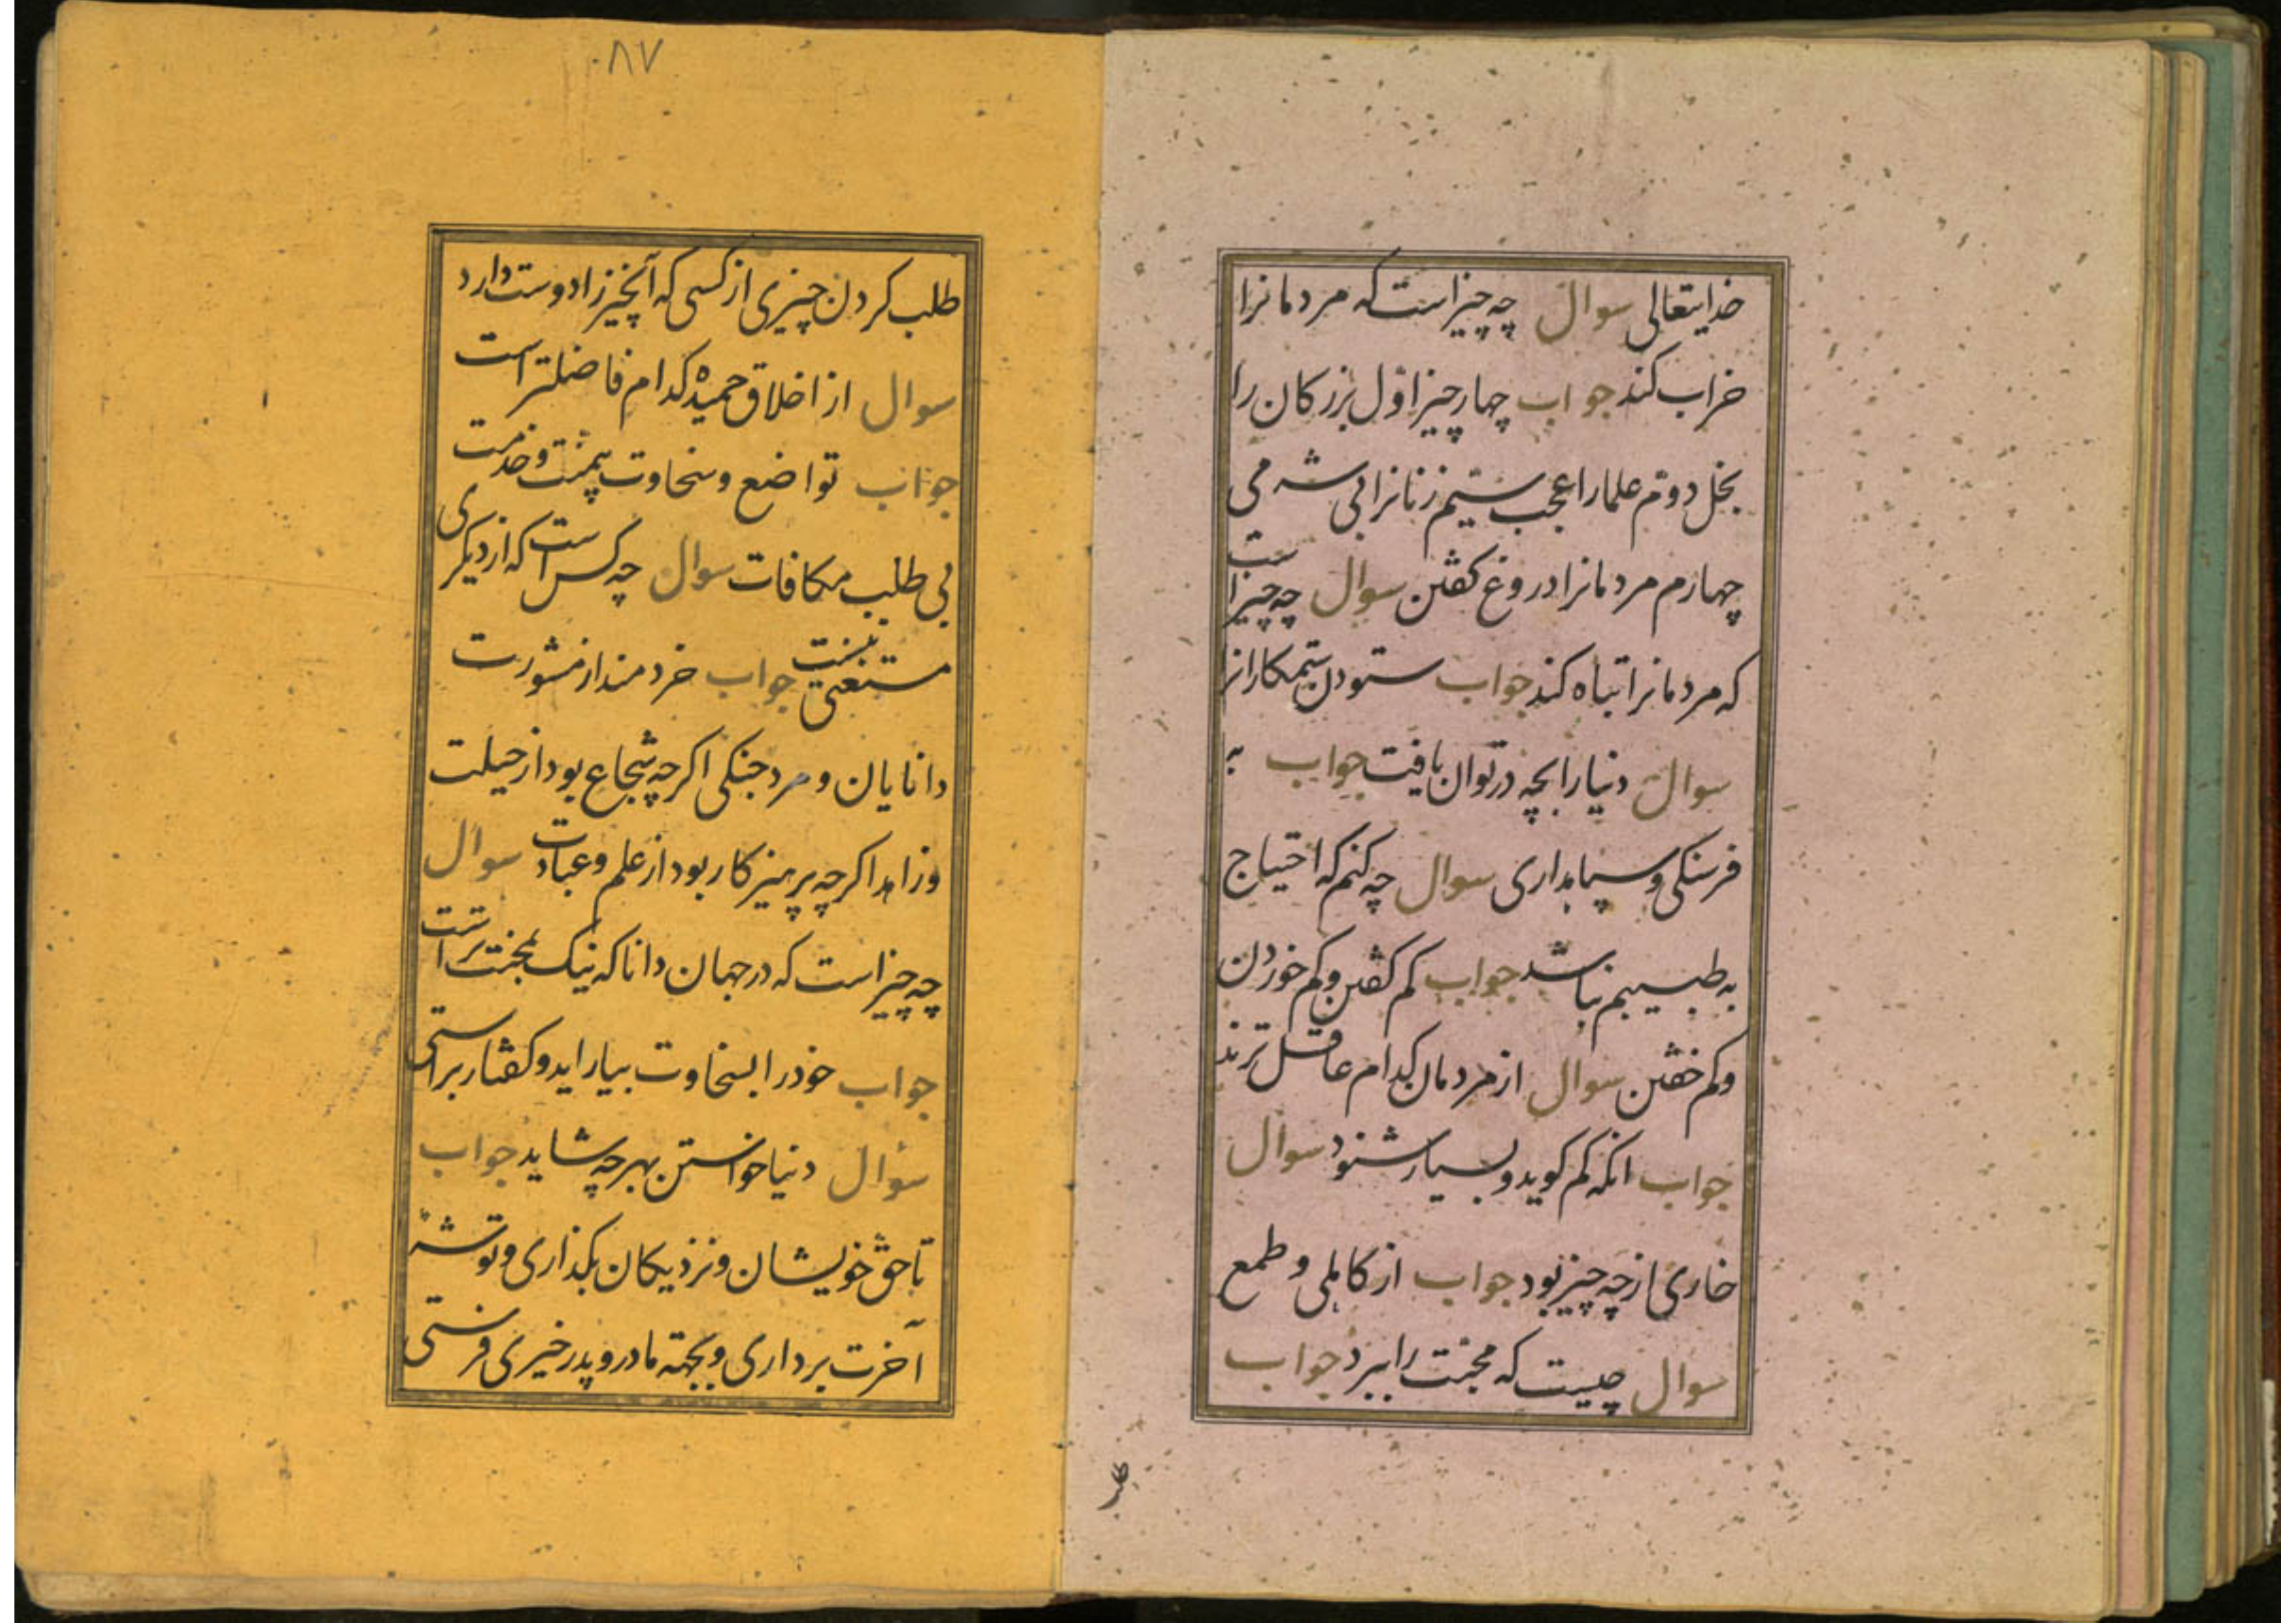 خدایتعالی سوال چه چیز است که مردمانرا
خراب کند جواب چهار چیز اوّل بزرکان را
بخل دوّم علمارا عجب سیّم زنانرا بی شرمی
چهارم مردمانرا دروغ کفتن سوال چه چیز است
که مردمانرا تباه کند جواب ستودن ستمکارانرا
سوال دنیا را بچه در توان یافت جواب به
فرهنکی و سپاسداری سوال چه کنم که احتیاج
به طبیبم نباشد جواب کم کفتن و کم خوردن
و کم خفتن سوال از مردمان کدام عاقل ترند
جواب انکه کم کوید و بسیار شنود سوال
خاری از چه چیز بود جواب از کاهلی و طمع
سوال چیست که محبت را ببرد جواب
طلب
۸۷
طلب کردن چیزی از کسی که آنچیز را دوست دارد
سوال از اخلاق حمیده کدام فاضلتر است
جواب تواضع و سخاوت بی منت و خدمت
بی طلب مکافات سوال چه کس است که از دیکری
مستغنی نیست جواب خردمند از مشورت
دانایان و مرد جنکی اکر چه شجاع بود از حیلت
و زاهد اکر چه پرهیز کار بود از علم و عبادت سوال
چه چیز است که در جهان دانا که نیک بخت تر است
جواب خود را بسخاوت بیاراید و کفتار براستی
سؤال دنیا خواستن بهر چه شاید جواب
تا حق خویشان و نزدیکان بکذاری و توشه
آخرت برداری و بجهته مادر و پدر خیری فرستی